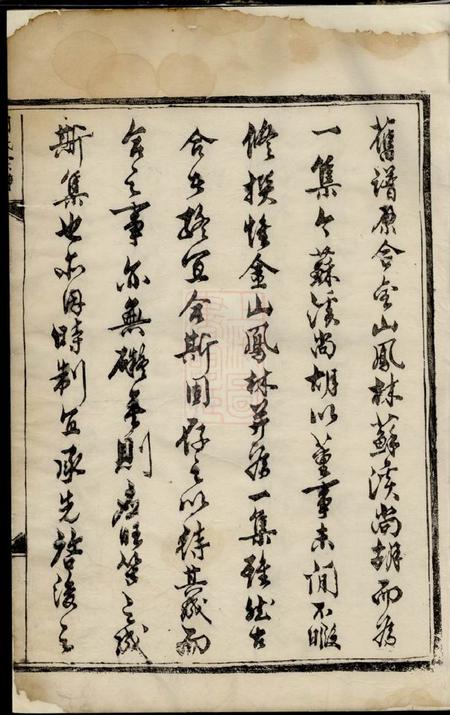 舊譜原合金山鳳林蘇溪尚胡而為
一集今蘇溪尚胡以董事未閒不暇
修撰惟金山鳳林并為一集雖然古
合者終宜合斯固存之以待其成而
合之事亦無礙矣則應旺等之成
斯集也亦因時制宜承先啓後之